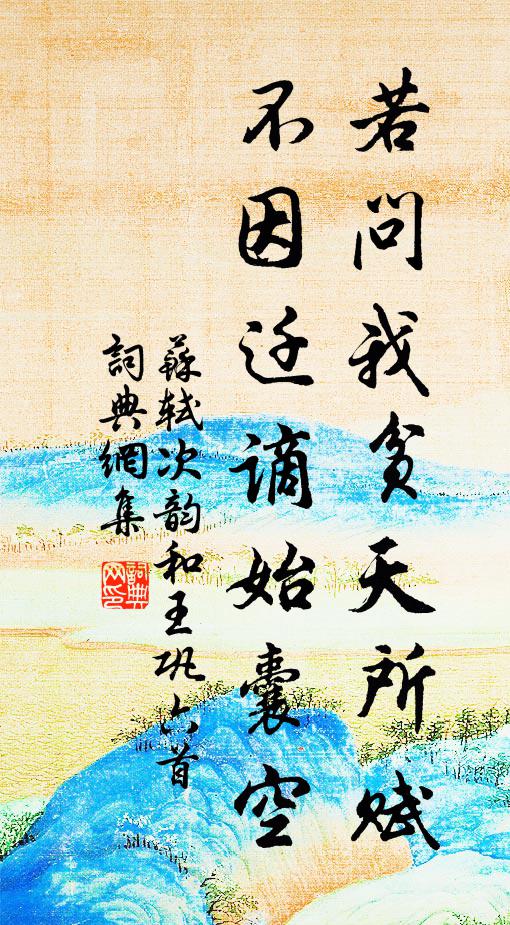 若問我貧天所賦
不因迁謫始囊空
蘇軾次韵和王巩六首
詞典網集
詞典网印